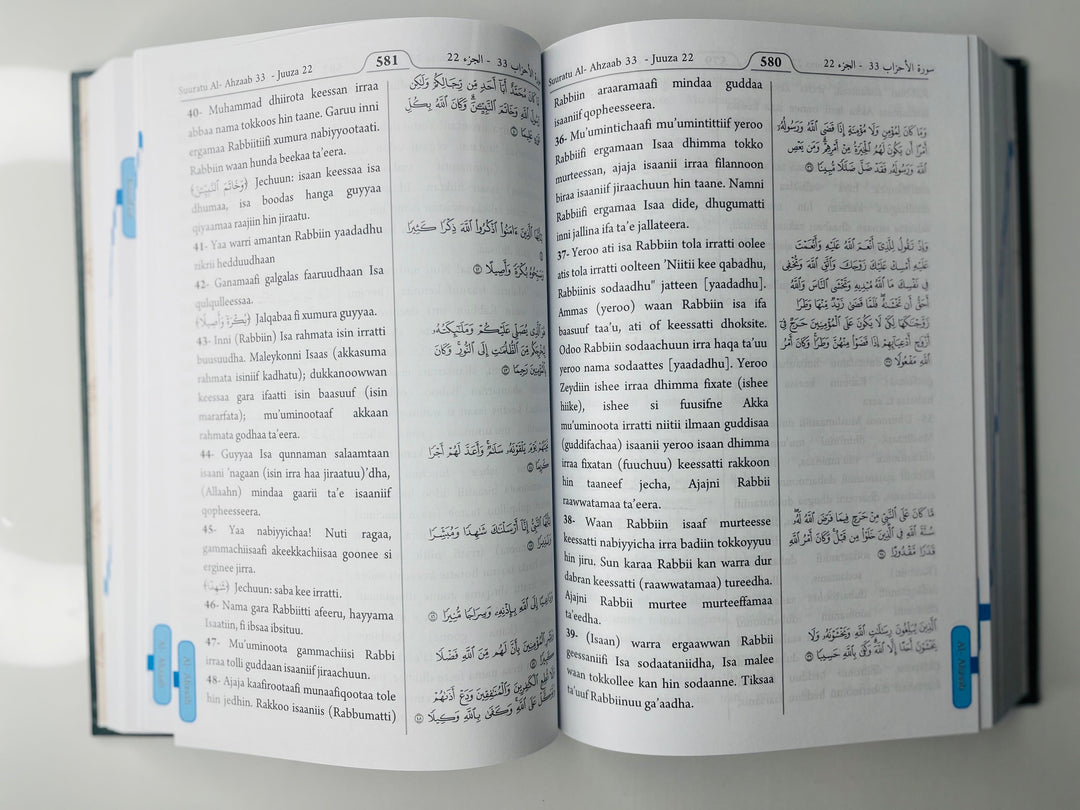 Suuratu Al- Ahzaab 33 - Juuza 22
580
سورة الأحزاب 33 - الجزء 22
Rabbiin araaramaafi mindaa guddaa
isaaniif qopheesseera.
36- Mu'umintichaafi mu'umintittiif yeroo
Rabbiifi ergamaan Isaa dhimma tokko
murteessan, ajaja isaanii irraa filannoon
biraa isaaniif jiraachuun hin taane. Namni
Rabbiifi ergamaa Isaa dide, dhugumatti
inni jallina ifa ta'e jallateera.
37- Yeroo ati isa Rabbiin tola irratti oolee
atis tola irratti oolteen 'Niitii kee qabadhu,
Rabbiinis sodaadhu" jatteen [yaadadhu].
Ammas (yeroo) waan Rabbiin isa ifa
baasuuf taa'u, ati of keessatti dhoksite.
Odoo Rabbiin sodaachuun irra haqa ta'uu
yeroo nama sodaattes [yaadadhu]. Yeroo
Zeydiin ishee irraa dhimma fixate (ishee
hiike), ishee si fuusifne Akka
mu'uminoota irratti niitii ilmaan guddisaa
(guddifachaa) isaanii yeroo isaan dhimma
irraa fixatan (fuuchuu) keessatti rakkoon
hin taaneef jecha, Ajajni Rabbii
raawwatamaa ta'eera.
38- Waan Rabbiin isaaf murteesse
keessatti nabiyyicha irra badiin tokkoyyuu
hin jiru. Sun karaa Rabbii kan warra dur
dabran keessatti (raawwatamaa) tureedha.
Ajajni Rabbii murtee murteeffamaa
ta'eedha.
39- (Isaan) warra ergaawwan Rabbii
geessaniifi Isa sodaataniidha, Isa malee
waan tokkollee kan hin sodaanne. Tiksaa
ta'uuf Rabbiinuu ga'aadha.
وَمَا كَانَ لِمُؤْمِنٍ وَلَا مُؤْمِنَةٍ إِذَا قَضَى ٱللَّهُ وَرَسُولُهُۥٓ
أَمْرًا أَن يَكُونَ لَهُمُ ٱلْخِيَرَةُ مِنْ أَمْرِهِمْ ۗ وَمَن يَعْصِ
ٱللَّهَ وَرَسُولَهُۥ فَقَدْ ضَلَّ ضَلَٰلًا مُّبِينًا ٣٦
وَإِذْ تَقُولُ لِلَّذِىٓ أَنْعَمَ ٱللَّهُ عَلَيْهِ وَأَنْعَمْتَ
عَلَيْهِ أَمْسِكْ عَلَيْكَ زَوْجَكَ وَٱتَّقِ ٱللَّهَ وَتُخْفِى
فِى نَفْسِكَ مَا ٱللَّهُ مُبْدِيهِ وَتَخْشَى ٱلنَّاسَ وَٱللَّهُ
أَحَقُّ أَن تَخْشَىٰهُ ۖ فَلَمَّا قَضَىٰ زَيْدٌ مِّنْهَا وَطَرًا
زَوَّجْنَٰكَهَا لِكَىْ لَا يَكُونَ عَلَى ٱلْمُؤْمِنِينَ حَرَجٌ فِىٓ
أَزْوَٰجِ أَدْعِيَآئِهِمْ إِذَا قَضَوْا۟ مِنْهُنَّ وَطَرًا ۚ وَكَانَ أَمْرُ
ٱللَّهِ مَفْعُولًا ٣٧
مَّا كَانَ عَلَى ٱلنَّبِىِّ مِنْ حَرَجٍ فِيمَا فَرَضَ ٱللَّهُ لَهُۥ ۖ
سُنَّةَ ٱللَّهِ فِى ٱلَّذِينَ خَلَوْا۟ مِن قَبْلُ ۚ وَكَانَ أَمْرُ ٱللَّهِ
قَدَرًا مَّقْدُورًا ٣٨
ٱلَّذِينَ يُبَلِّغُونَ رِسَٰلَٰتِ ٱللَّهِ وَيَخْشَوْنَهُۥ وَلَا
يَخْشَوْنَ أَحَدًا إِلَّا ٱللَّهَ ۗ وَكَفَىٰ بِٱللَّهِ حَسِيبًا ٣٩
Al- Ahzab
Suuratu Al- Ahzaab 33 - Juuza 22
581
سورة الأحزاب 33 - الجزء 22
40- Muhammad dhiirota keessan irraa
abbaa nama tokkoos hin taane. Garuu inni
ergamaa Rabbiitiifi xumura nabiyyootaati.
Rabbiin waan hunda beekaa ta'eera.
﴿وَخَاتَمَ ٱلنَّبِيِّـۧنَ﴾ Jechuun: isaan keessaa isa
dhumaa, isa boodas hanga guyyaa
qiyaamaa raajiin hin jiraatu.
41- Yaa warri amantan Rabbiin yaadadhu
zikrii hedduudhaan
42- Ganamaafi galgalas faaruudhaan Isa
qulqulleessaa.
﴿بُكْرَةً وَأَصِيلًا﴾ Jalqabaa fi xumura guyyaa.
43- Inni (Rabbiin) Isa rahmata isin irratti
buusuudha. Maleykonni Isaas (akkasuma
rahmata isiniif kadhatu); dukkanoowwan
keessaa gara ifaatti isin baasuuf (isin
mararfata); mu'uminootaaf akkaan
rahmata godhaa ta'eera.
44- Guyyaa Isa qunnaman salaamtaan
isaani 'nagaan (isin irra haa jiraatuu)'dha,
(Allaahn) mindaa gaarii ta'e isaaniif
qopheesseera.
45- Yaa nabiyyichaa! Nuti ragaa,
gammachiisaafi akeekkachiisaa goonee si
erginee jirra.
﴿شَٰهِدًا﴾ Jechuun: saba kee irratti.
46- Nama gara Rabbiitti afeeru, hayyama
Isaatiin, fi ibsaa ibsituu.
47- Mu'uminoota gammachiisi Rabbi
irraa tolli guddaan isaaniif jiraachuun.
48- Ajaja kaafirootaafi munaafiqootaa tole
hin jedhin. Rakkoo isaaniis (Rabbumatti)
مَّا كَانَ مُحَمَّدٌ أَبَآ أَحَدٍ مِّن رِّجَالِكُمْ وَلَٰكِن
رَّسُولَ ٱللَّهِ وَخَاتَمَ ٱلنَّبِيِّـۧنَ ۗ وَكَانَ ٱللَّهُ بِكُلِّ
شَىْءٍ عَلِيمًا ٤٠
يَٰٓأَيُّهَا ٱلَّذِينَ ءَامَنُوا۟ ٱذْكُرُوا۟ ٱللَّهَ ذِكْرًا كَثِيرًا
٤١
وَسَبِّحُوهُ بُكْرَةً وَأَصِيلًا ٤٢
هُوَ ٱلَّذِى يُصَلِّى عَلَيْكُمْ وَمَلَٰٓئِكَتُهُۥ
لِيُخْرِجَكُم مِّنَ ٱلظُّلُمَٰتِ إِلَى ٱلنُّورِ ۚ وَكَانَ
بِٱلْمُؤْمِنِينَ رَحِيمًا ٤٣
تَحِيَّتُهُمْ يَوْمَ يَلْقَوْنَهُۥ سَلَٰمٌ ۚ وَأَعَدَّ لَهُمْ أَجْرًا
كَرِيمًا ٤٤
يَٰٓأَيُّهَا ٱلنَّبِىُّ إِنَّآ أَرْسَلْنَٰكَ شَٰهِدًا وَمُبَشِّرًا
وَنَذِيرًا ٤٥
وَدَاعِيًا إِلَى ٱللَّهِ بِإِذْنِهِۦ وَسِرَاجًا مُّنِيرًا ٤٦
وَبَشِّرِ ٱلْمُؤْمِنِينَ بِأَنَّ لَهُم مِّنَ ٱللَّهِ فَضْلًا
كَبِيرًا ٤٧
وَلَا تُطِعِ ٱلْكَٰفِرِينَ وَٱلْمُنَٰفِقِينَ وَدَعْ أَذَىٰهُمْ
وَتَوَكَّلْ عَلَى ٱللَّهِ ۚ وَكَفَىٰ بِٱللَّهِ وَكِيلًا ٤٨
Al- Ahzab